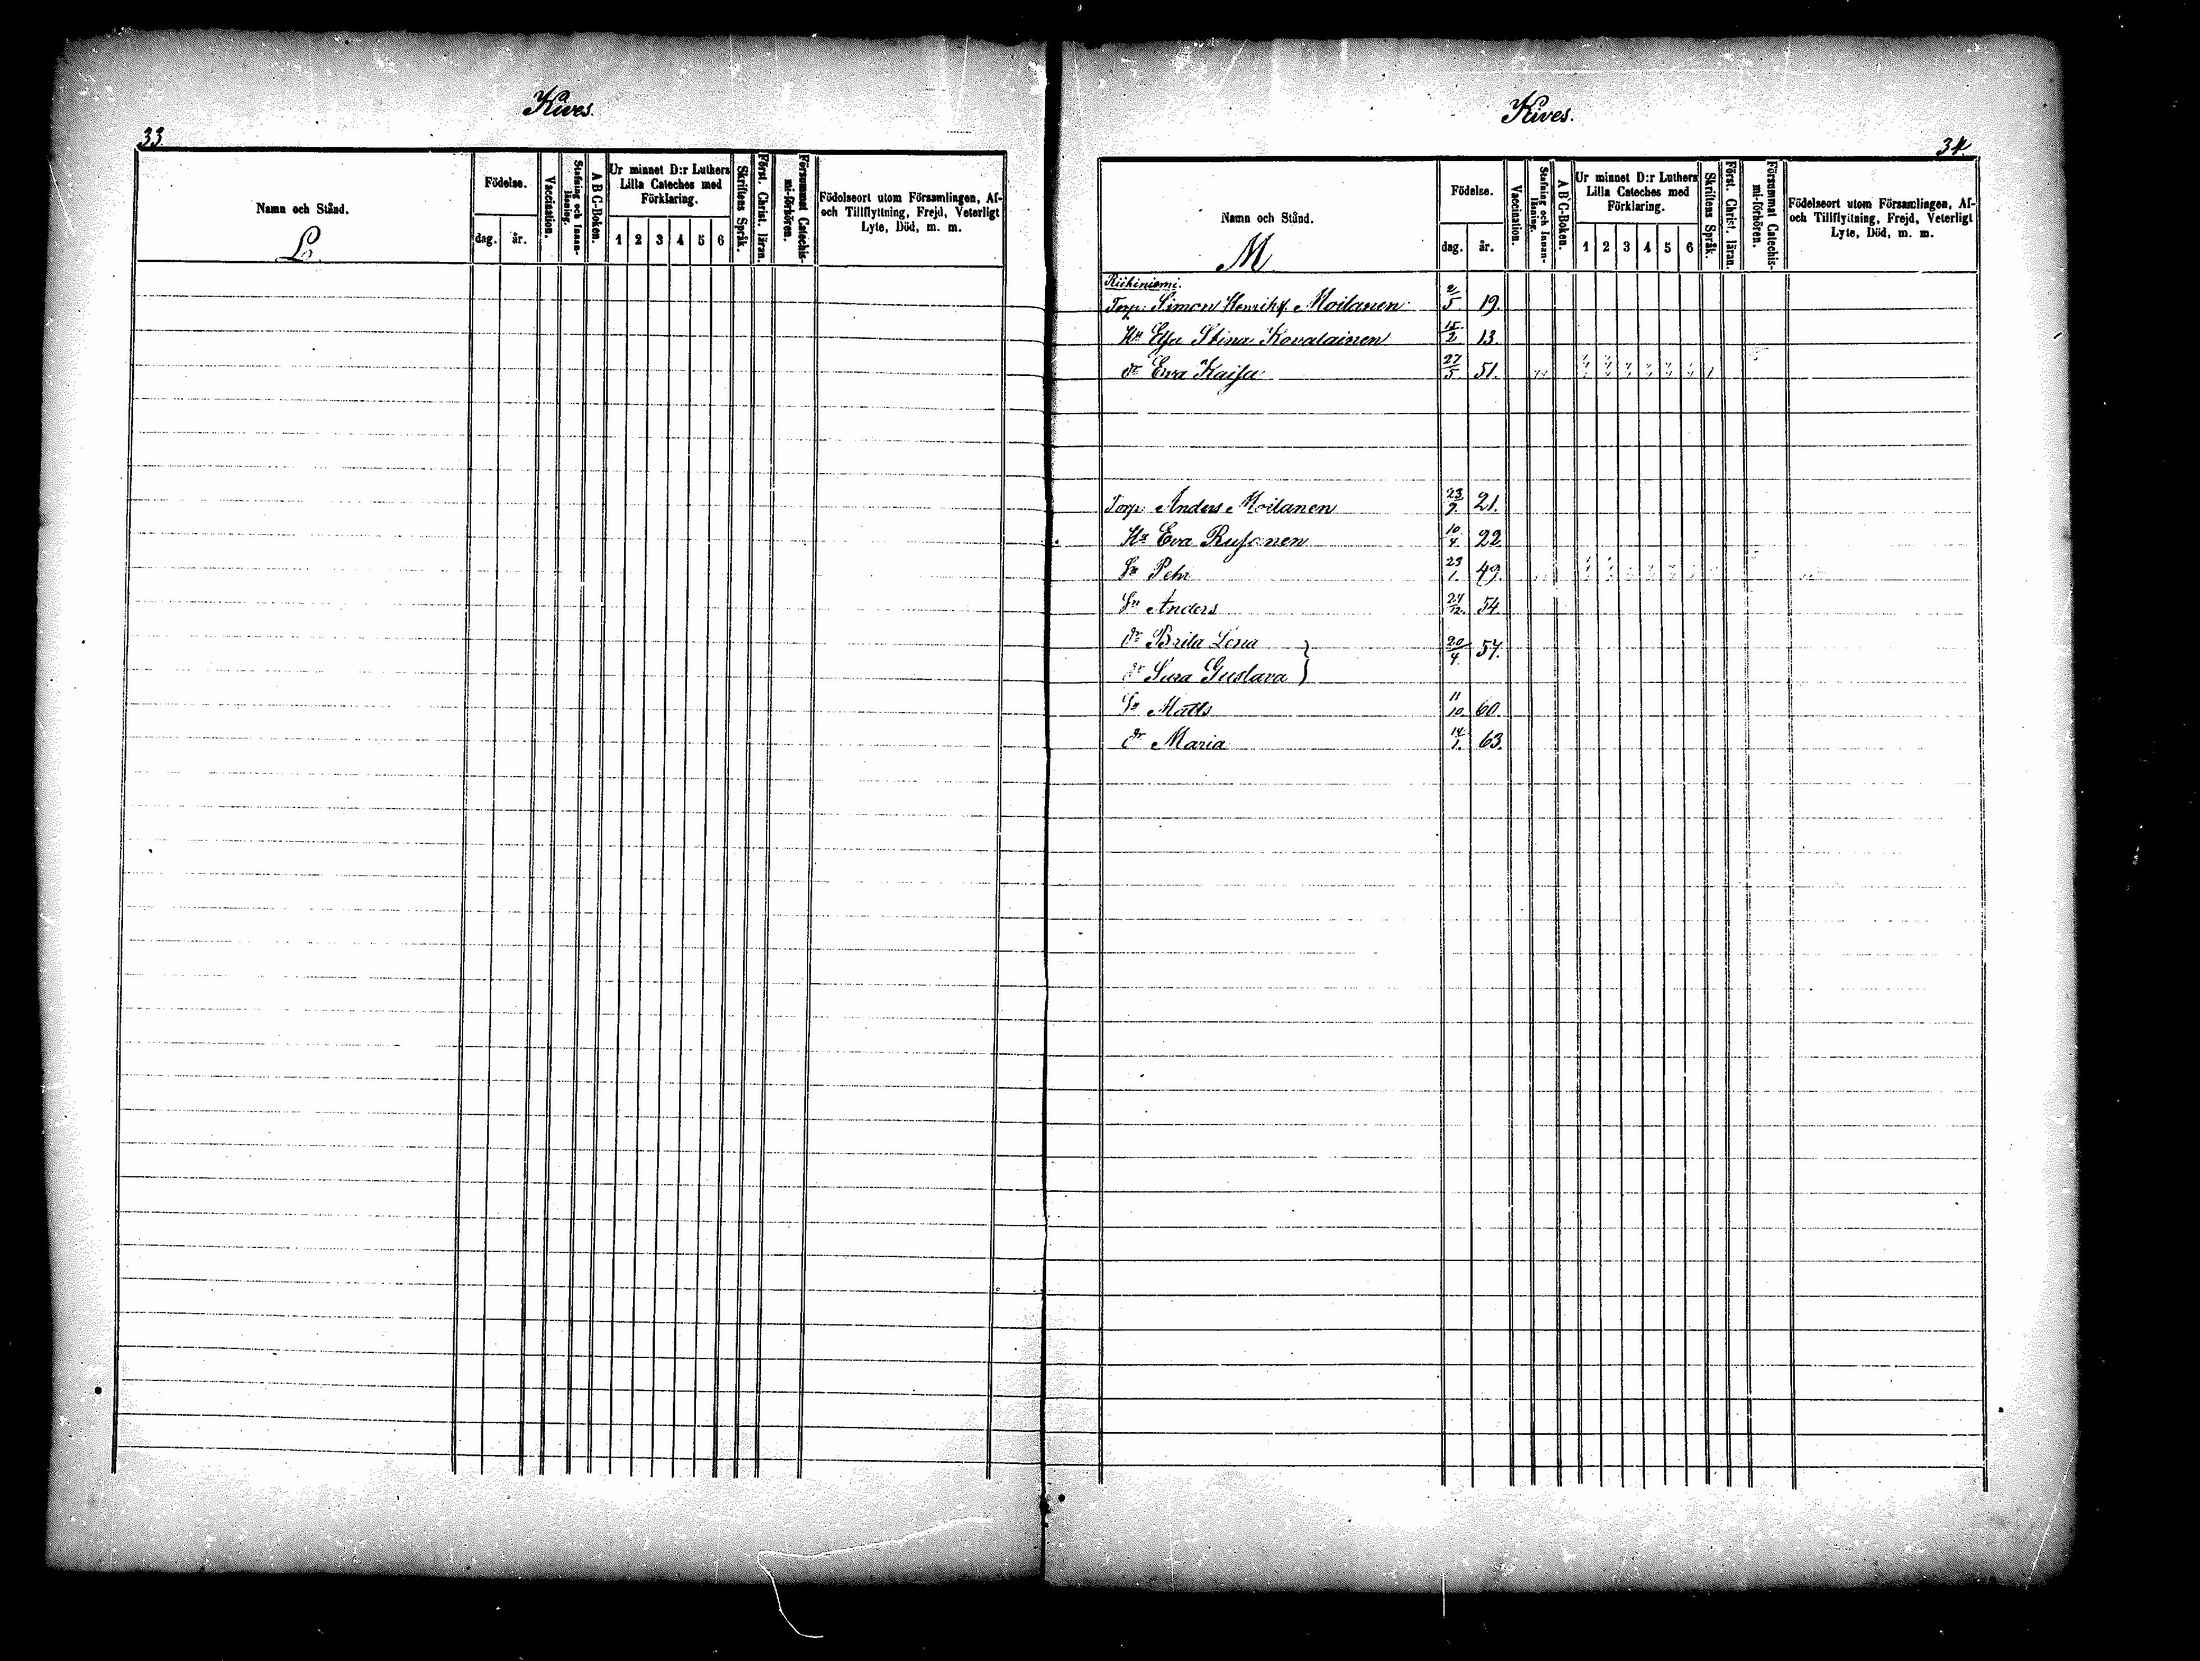 Kives.
33.
Namn och Stånd.
L.
Födelse.
dag. år.
Vaccination.
Stafning och Innan-
läsning.
A B C-Boken.
Ur minnet D:r Luthers
Lilla Cateches med
Förklaring.
1 2 3 4 5 6
Skriftens Språk.
Först. Christ. läran.
Försummat Catechis-
mi-förhören.
Födelseort utom Församlingen, Af-
och Tillflyttning, Frejd, Veterligt
Lyte, Död, m. m.
Kives.
34.
Namn och Stånd.
M
Födelse.
dag. år.
Vaccination.
Stafning och Innan-
läsning.
A B C-Boken.
Ur minnet D:r Luthers
Lilla Cateches med
Förklaring.
1 2 3 4 5 6
Skriftens Språk.
Först. Christ. läran.
Försummat Catechis-
mi-förhören.
Födelseort utom Församlingen, Af-
och Tillflyttning, Frejd, Veterligt
Lyte, Död, m. m.
Riihiniemi.
Torp. Simon Henriks. Moilanen 2/5 19.
Hu Elsa Stina Kovalainen 15/2 13.
dr Ewa Kaisa 27/5 51.
Torp. Anders Moilanen 23/9. 21.
Hu Eva Rusonen 10/4. 22
Sn Pehr 23/1. 49.
Sn Anders 24/12. 54.
dr Brita Lena } 20/4 57.
dr Sura Gustava }
Sn Matts 11/10. 60.
dr Maria 14/1. 63.